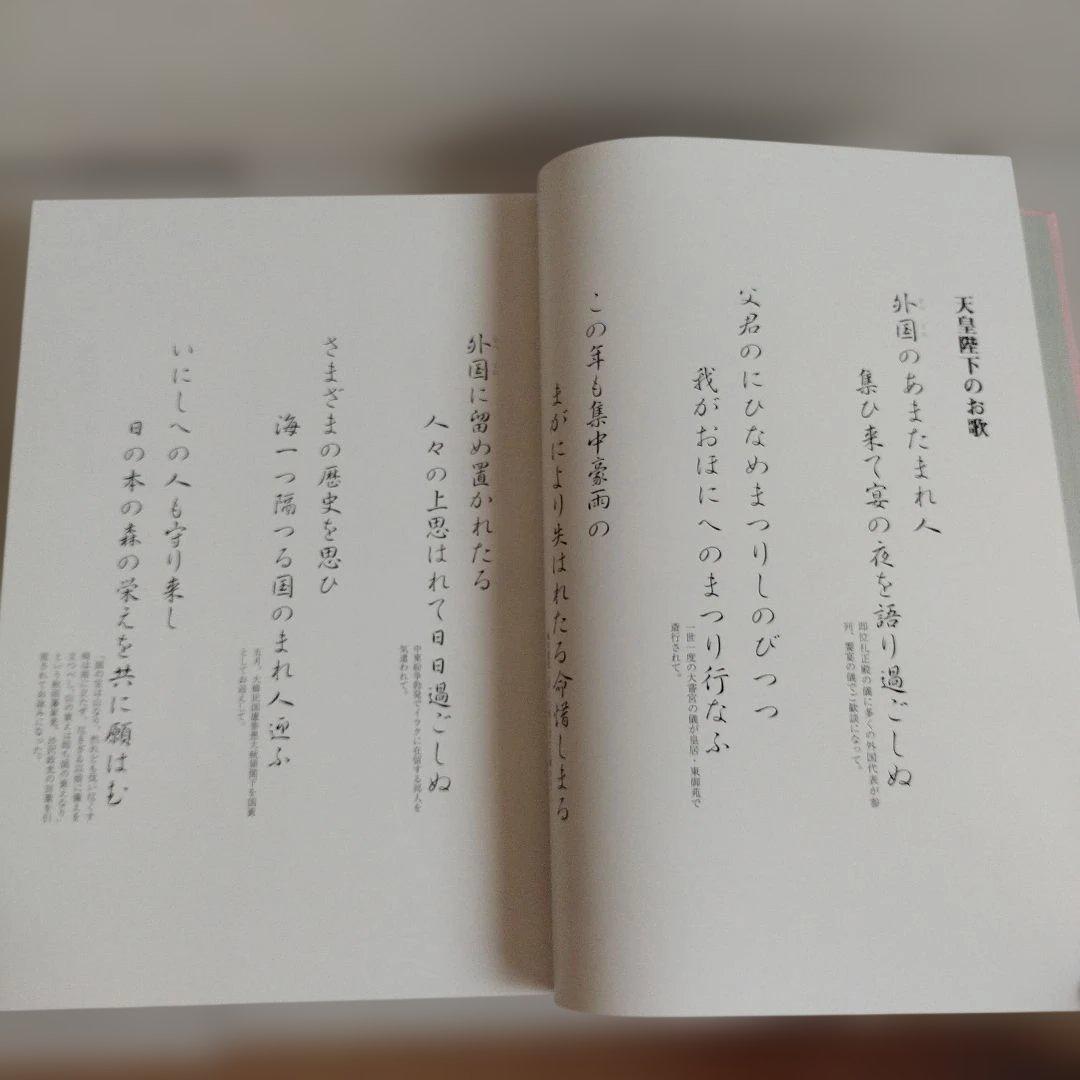 天皇陛下のお歌
外国のあまたまれ人
集ひ来て宴の夜を語り過ごしぬ
即位礼正殿の儀に多くの外国代表が参
列、饗宴の儀でご歓談になって。
父君のにひなめまつりしのびつつ
我がおほにへのまつり行なふ
一世一度の大嘗宮の儀が皇居・東御苑で
斎行されて。
この年も集中豪雨の
まがにより失はれたる命惜しまる
外国に留め置かれたる
人々の上思はれて日日過ごしぬ
中東紛争勃発でイラクに在留する邦人を
気遣われて。
さまざまの歴史を思ひ
海一つ隔つる国のまれ人迎ふ
五月、大韓民国盧泰愚大統領閣下を国賓
としてお迎えして。
いにしへの人も守り来し
日の本の森の栄えを共に願はむ
という秋田藩家老、渋江政光の言葉を引
用されてお詠みになった。